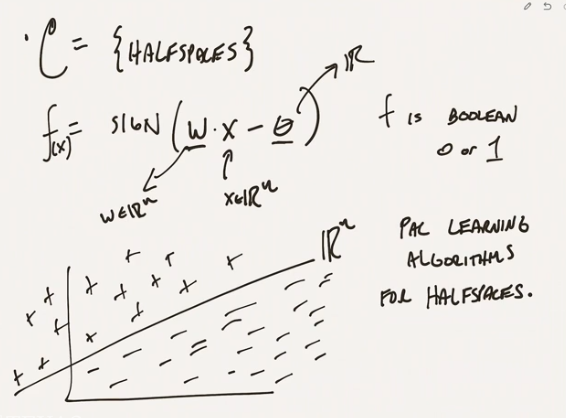 C = {HALFSPACES}
f(x) = SIGN(W·X - θ)
ℝ
W∈ℝⁿ
X∈ℝⁿ
f IS BOOLEAN
0 or 1
ℝⁿ
PAC LEARNING
ALGORITHMS
FOR HALFSPACES.